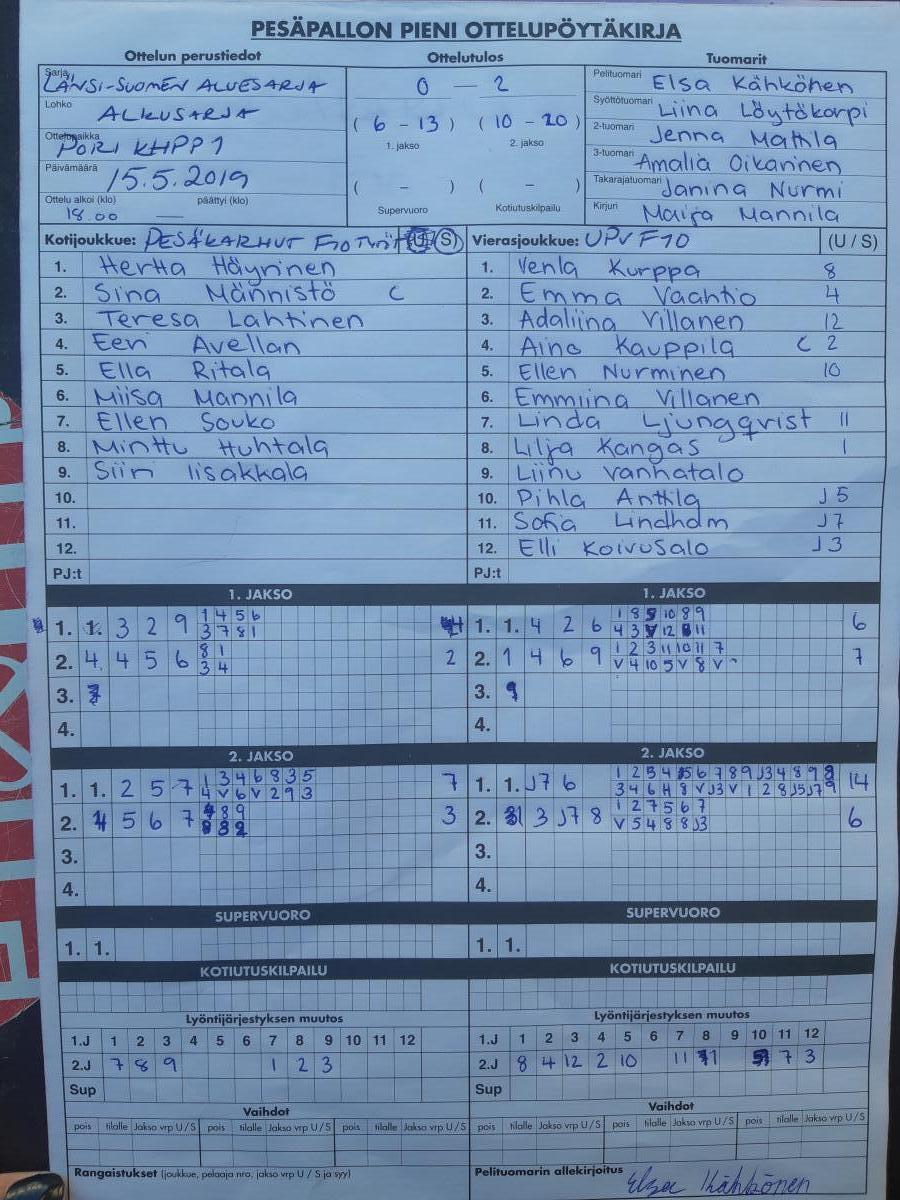 PESÄPALLON PIENI OTTELUPÖYTÄKIRJA
Ottelun perustiedot Ottelutulos Tuomarit
Sarja LÄNSI-SUOMEN ALUESARJA
Lohko ALKUSARJA
Ottelupaikka PORI KHPP1
Päivämäärä 15.5.2019
Ottelu alkoi (klo) päättyi (klo)
18.00 —
0 — 2
( 6 - 13 ) ( 10 - 20 )
1. jakso 2. jakso
( - ) ( - )
Supervuoro Kotiutuskilpailu
Pelituomari Elsa Kähkönen
Syöttötuomari Liina Löytökorpi
2-tuomari Jenna Mattila
3-tuomari Amalia Oikarinen
Takarajatuomari Janina Nurmi
Kirjuri Maija Mannila
Kotijoukkue: PESÄKARHUT F10 Tytöt (S) Vierasjoukkue: UPV F10 (U / S)
1. Hertta Häyrinen 1. Venla Kurppa 8
2. Sina Männistö C 2. Emma Vaahtio 4
3. Teresa Lahtinen 3. Adaliina Villanen 12
4. Eeri Avellan 4. Aino Kauppila C 2
5. Ella Ritala 5. Ellen Nurminen 10
6. Miisa Mannila 6. Emmiina Villanen
7. Ellen Souko 7. Linda Ljungqvist 11
8. Minttu Huhtala 8. Lilja Kangas 1
9. Siiri Iisakkala 9. Liinu Vanhatalo
10. 10. Pihla Anttila J5
11. 11. Sofia Lindholm J7
12. 12. Elli Koivusalo J3
PJ:t PJ:t
1. JAKSO 1. JAKSO
1. 1. 3 2 9 1 4 5 6 4 1. 1. 4 2 6 1 8 5 10 8 9 6
3 7 8 1 4 3 V 12 11
2. 4 4 5 6 8 1 2 2. 1 4 6 9 1 2 3 11 10 11 7 7
3 4 V 4 10 5 V 8 V
3. 7 3. 9
4. 4.
2. JAKSO 2. JAKSO
1. 1. 2 5 7 1 3 4 6 8 3 5 7 1. 1. J7 6 1 2 3 4 5 6 7 8 9 J3 4 8 9 8 14
4 V 6 V 2 9 3 3 4 6 H 8 V J3 V 1 2 8 J5 J7 9
2. 4 5 6 7 8 9 3 2. 3 J7 8 1 2 7 5 6 7 6
8 3 2 V 5 4 8 8 J3
3. 3.
4. 4.
SUPERVUORO SUPERVUORO
1. 1. 1. 1.
KOTIUTUSKILPAILU KOTIUTUSKILPAILU
Lyöntijärjestyksen muutos Lyöntijärjestyksen muutos
1.J 1 2 3 4 5 6 7 8 9 10 11 12 1.J 1 2 3 4 5 6 7 8 9 10 11 12
2.J 7 8 9 1 2 3 2.J 8 4 12 2 10 11 1 7 3
Sup Sup
Vaihdot Vaihdot
pois tilalle Jakso vrp U / S pois tilalle Jakso vrp U / S pois tilalle Jakso vrp U / S pois tilalle Jakso vrp U / S pois tilalle Jakso vrp U / S pois tilalle Jakso vrp U / S
Rangaistukset (joukkue, pelaaja nro, jakso vrp U / S ja syy) Pelituomarin allekirjoitus Elsa Kähkönen